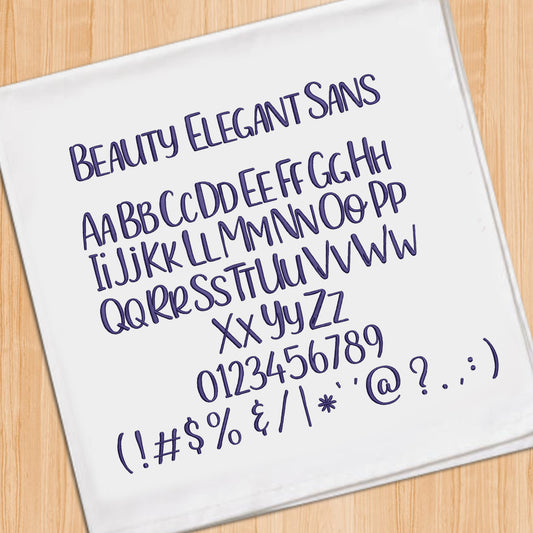 BEAUTY ELEGANT SANS
AaBbCcDdEeFfGgHh
IiJjKkLlMmNnOoPp
QqRrSsTtUuVvWw
XxYyZz
0123456789
(!#$%&/|*`´@?.,:)